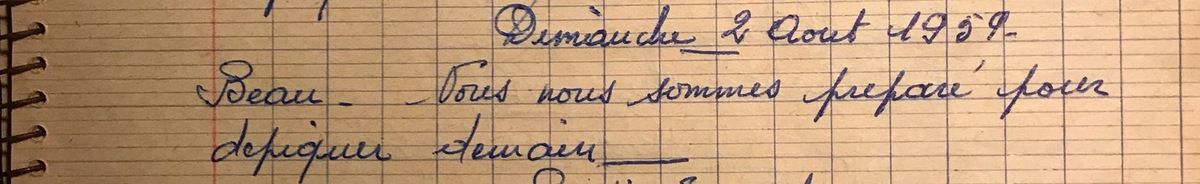 Dimanche 2 Aout 1959-
Beau - - Nous nous sommes preparé pour
depiquer demain